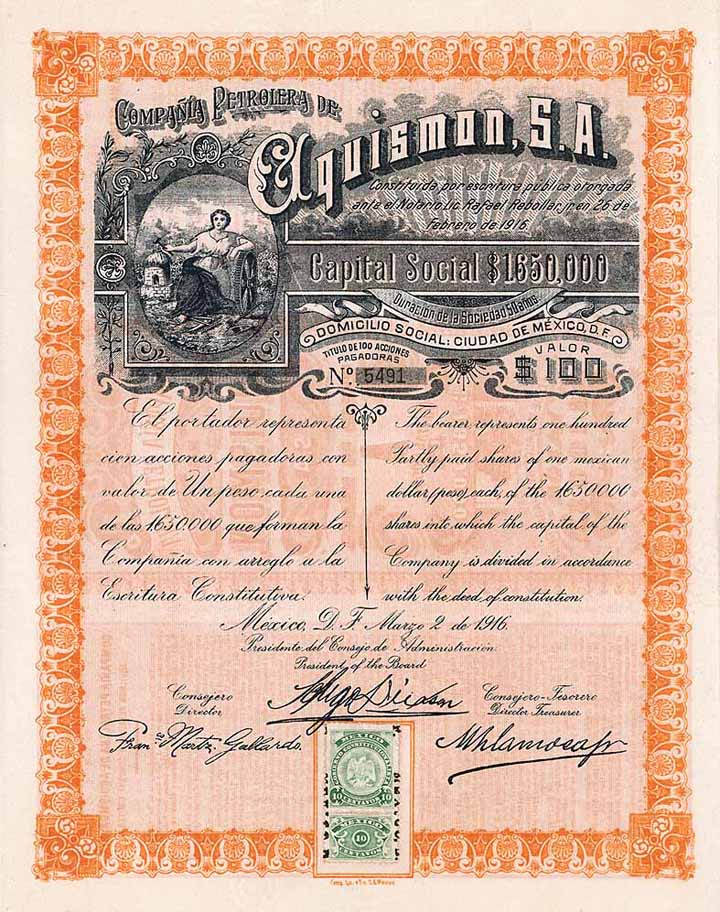 COMPAÑÍA PETROLERA DE
Aquismon, S.A.
Constituida, por escritura pública otorgada
ante el Notario Lic. Rafael Rebollar, jr. en 26 de
febrero de 1916.
Capital Social $1.650,000
Duración de la Sociedad 50 años
DOMICILIO SOCIAL: CIUDAD DE MÉXICO, D.F.
TITULO DE 100 ACCIONES
PAGADORAS
Nº 5491
VALOR
$100
El portador representa
cien acciones pagadoras con
valor de Un peso cada una
de las 1.650.000 que forman la
Compañía con arreglo a la
Escritura Constitutiva.
The bearer represents one hundred
Partly paid shares of one mexican
dollar (peso) each, of the 1.650.000
shares into which the capital of the
Company is divided in accordance
with the deed of constitution.
México, D. F. Marzo 2 de 1916.
Presidente del Consejo de Administración
President of the Board
Consejero
Director
Consejero-Tesorero
Director Treasurer
Franco Martz. Gallardo.
MEXICO
GOBIERNO CONSTITUCIONALISTA
10 CENTAVOS 10
MEXICO
10
CENTAVOS